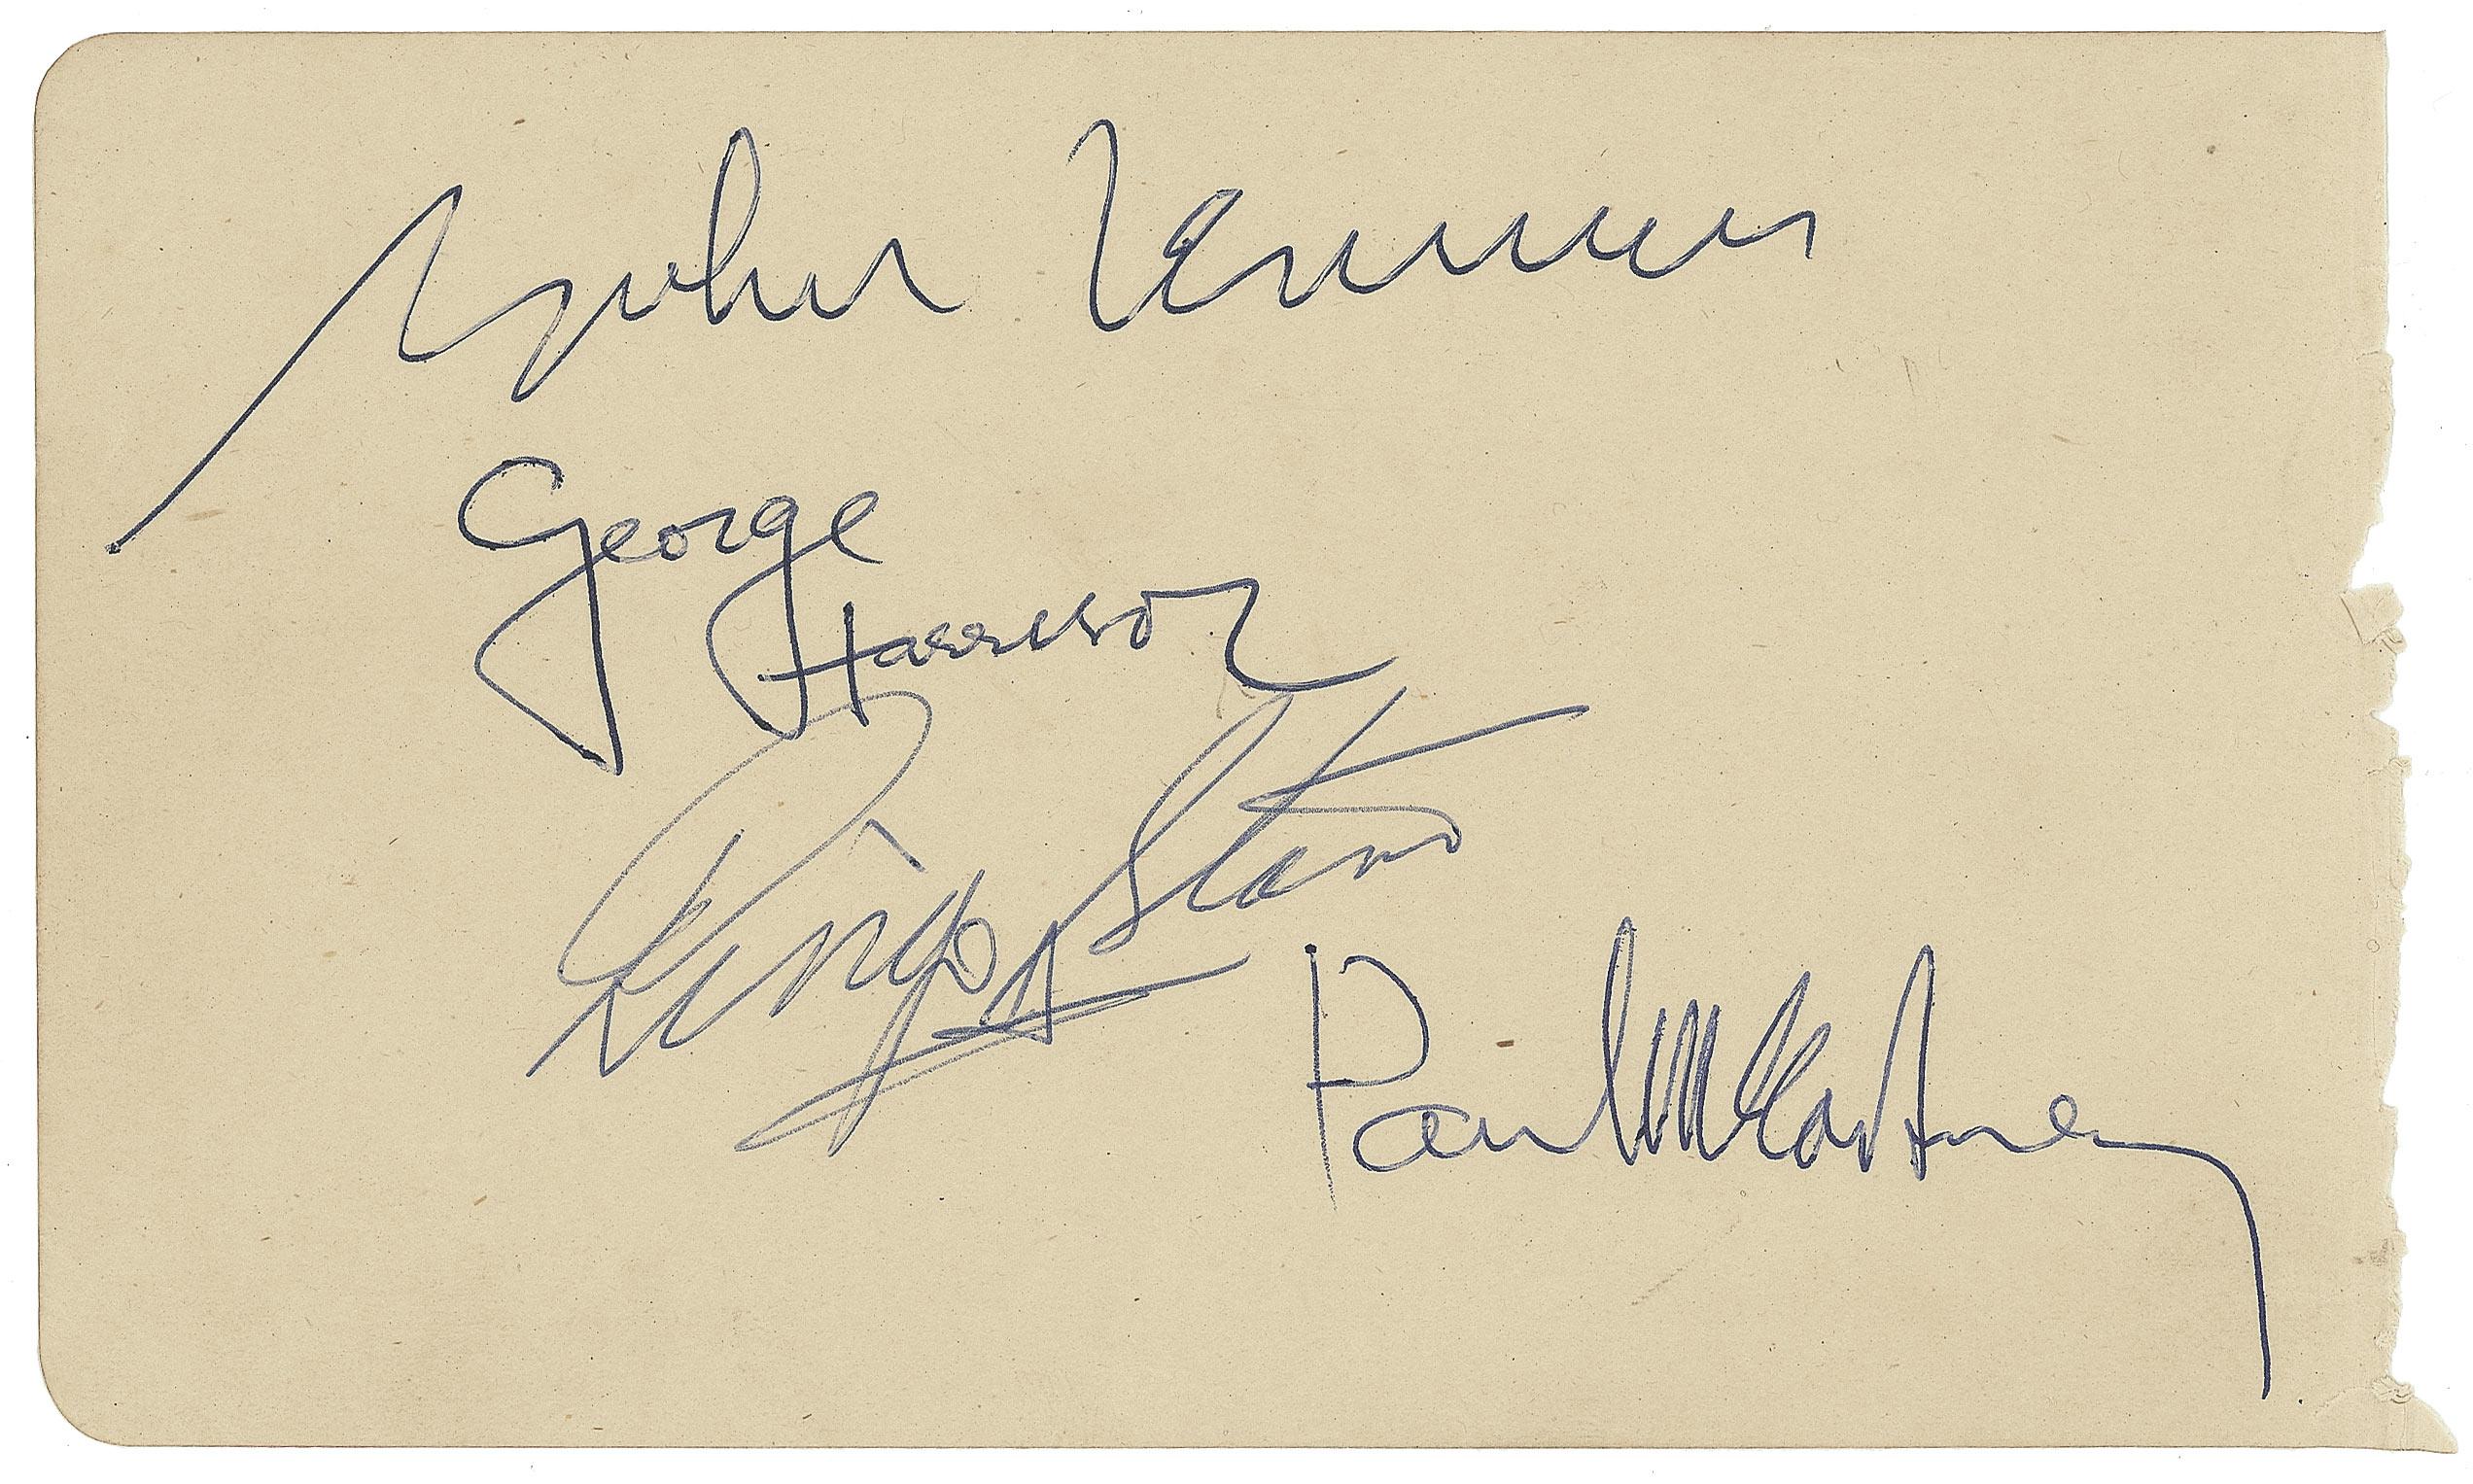 John Lennon
George
Harrison
Ringo Starr
Paul McCartney